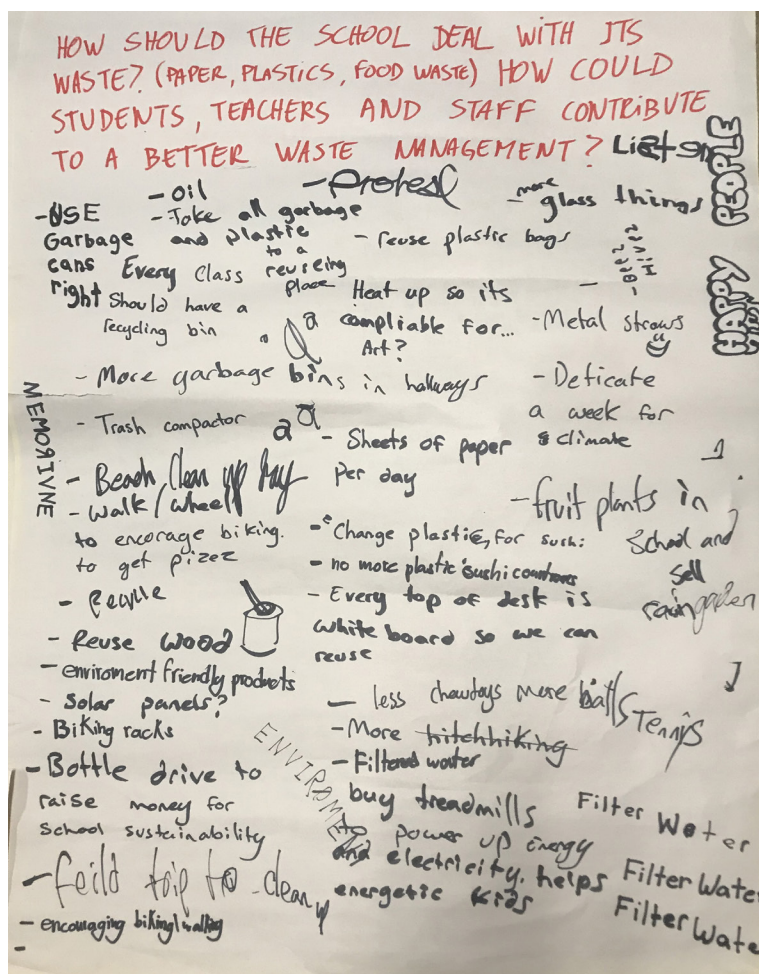 HOW SHOULD THE SCHOOL DEAL WITH ITS
WASTE? (PAPER, PLASTICS, FOOD WASTE) HOW COULD
STUDENTS, TEACHERS AND STAFF CONTRIBUTE
TO A BETTER WASTE MANAGEMENT?
HAPPY PEOPLE
- USE
Garbage
cans
right
- Oil
- Take all garbage
and plastic
to a
reuseing
place
Every Class
Should have a
recycling bin
- protest
- more
glass things
- reuse plastic bags
Heat up so its
compliable for...
Art?
- Metal straws
- More garbage bins in hallways
- Deticate
a week for
climate
MEMORIVNE
- Trash compactor
- Sheets of paper
Per day
- Beach Clean up Day
- Walk / wheel
to encorage biking.
to get pizez
- fruit plants in
School and
sell
raingarden
- Change plastic, for sushi
- no more plastic sushi
- Every top of desk is
white board so we can
reuse
- Recycle
- Reuse wood
- enviroment friendly products
- Solar panels?
- Biking racks
- less more balls Tennis
- More hitchhiking
- Filtered water
ENVIROMENT
- Bottle drive to
raise money for
School sustainability
buy treadmills
to power up Energy
and electricity. helps
energetic kids
Filter Water
Filter Water
Filter Wate
- feild trip to clean up
- encouraging biking/walking
-